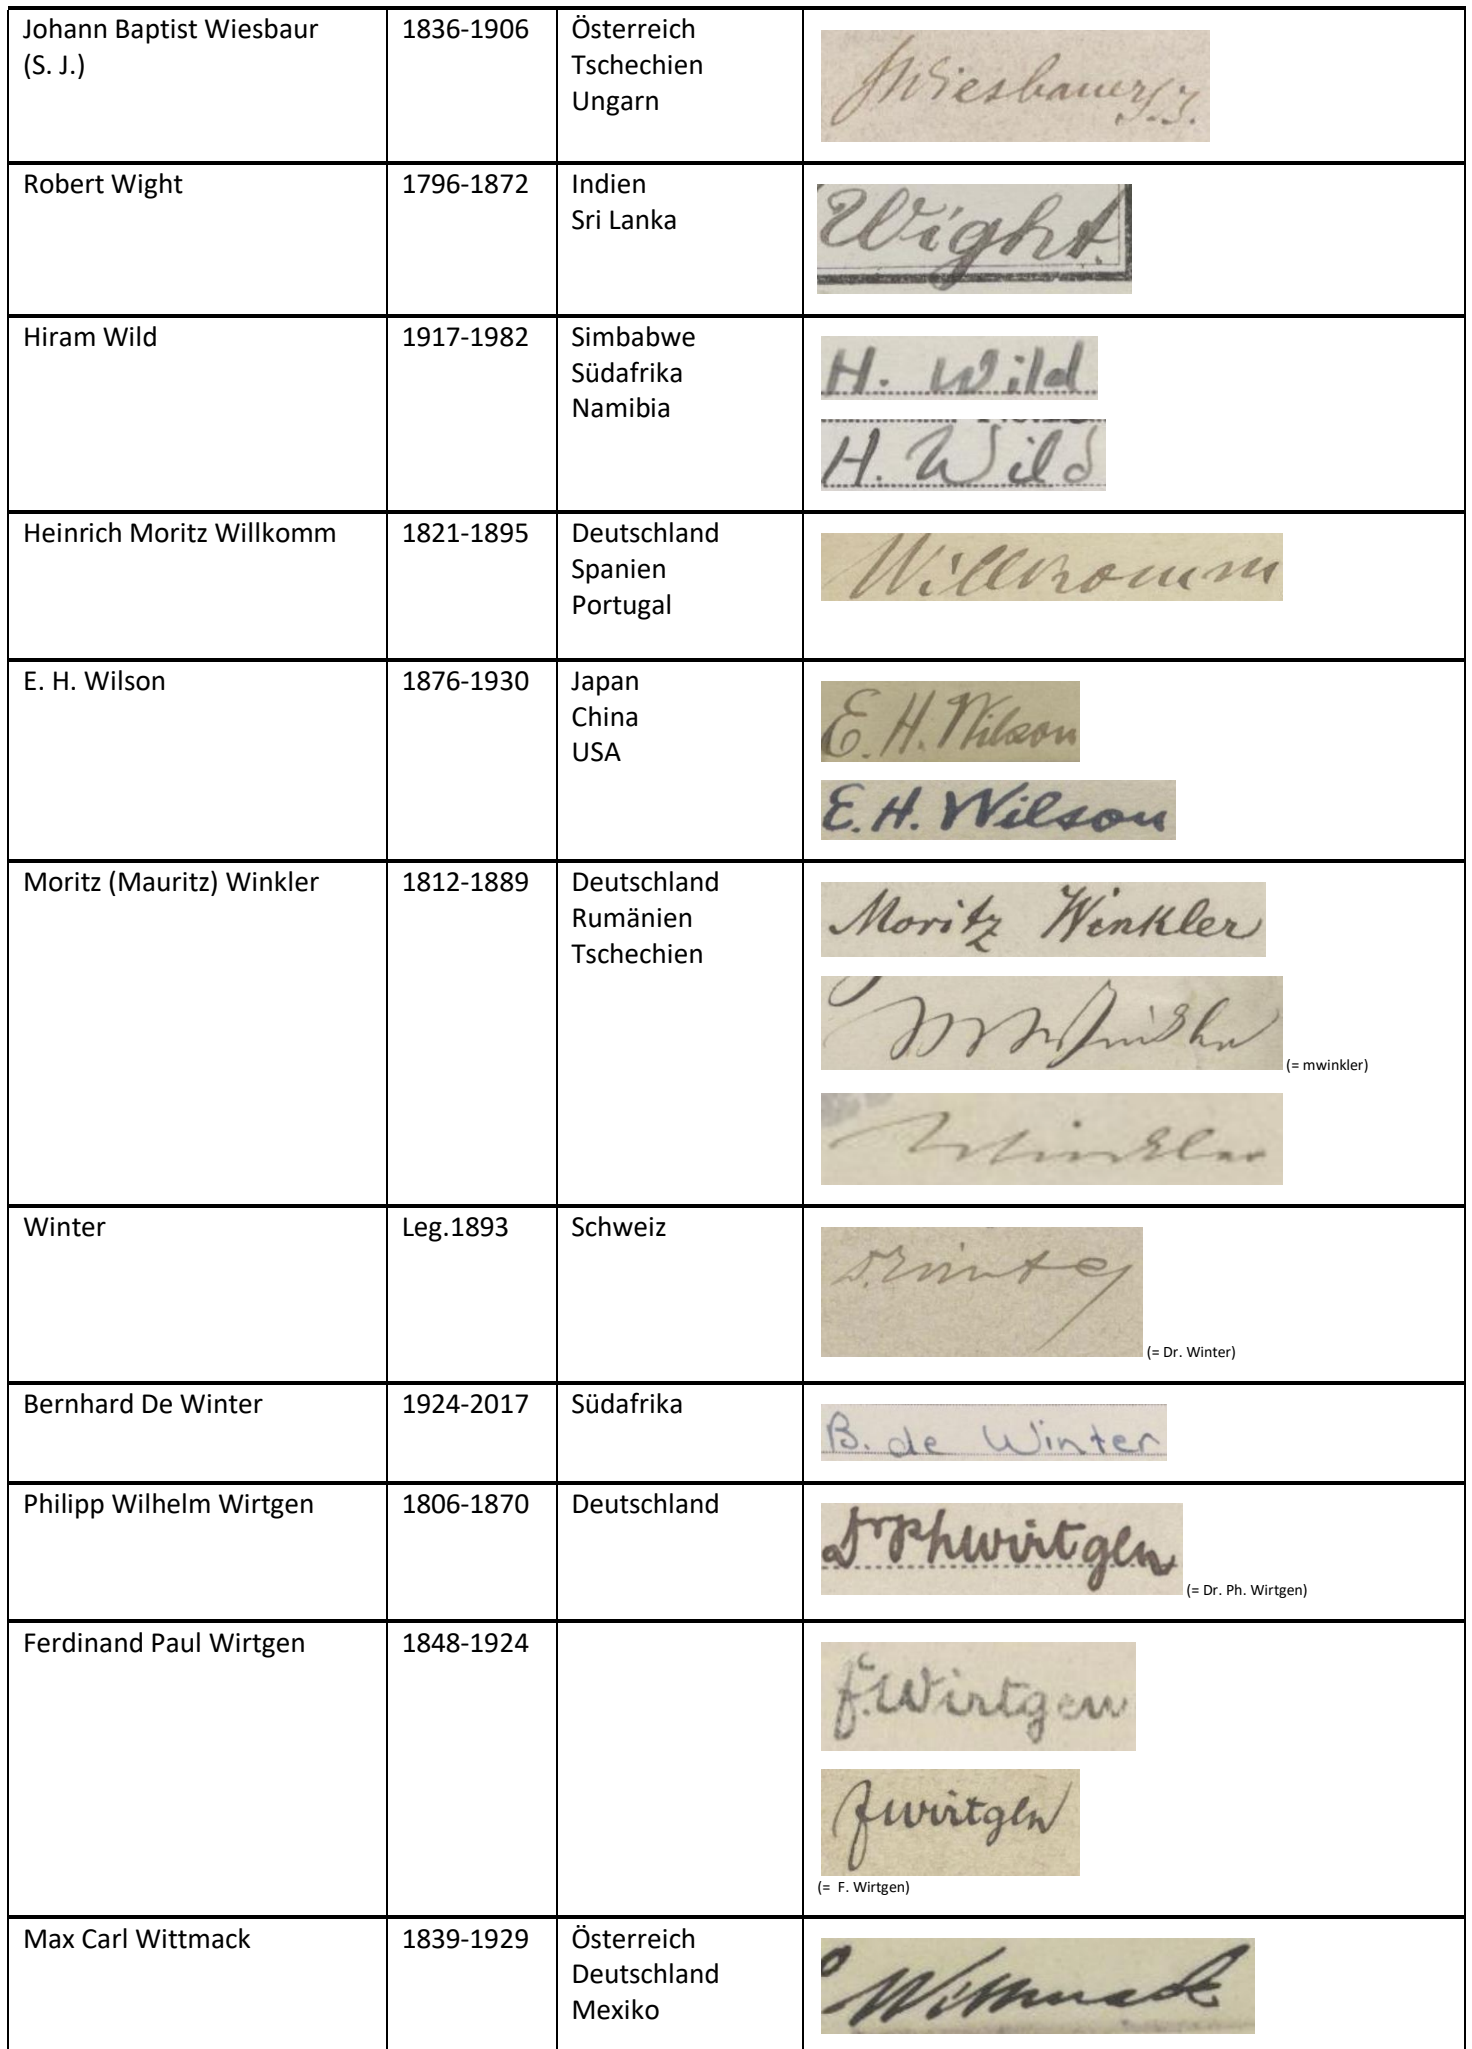 Johann Baptist Wiesbaur
(S. J.)
1836-1906
Österreich
Tschechien
Ungarn
JWiesbauer S.J.
Robert Wight
1796-1872
Indien
Sri Lanka
Wight.
Hiram Wild
1917-1982
Simbabwe
Südafrika
Namibia
H. Wild
H. Wild
Heinrich Moritz Willkomm
1821-1895
Deutschland
Spanien
Portugal
Willkomm
E. H. Wilson
1876-1930
Japan
China
USA
E. H. Wilson
E. H. Wilson
Moritz (Mauritz) Winkler
1812-1889
Deutschland
Rumänien
Tschechien
Moritz Winkler
MWinkler
(= mwinkler)
Winkler
Winter
Leg.1893
Schweiz
Dr. Winter
(= Dr. Winter)
Bernhard De Winter
1924-2017
Südafrika
B. de Winter
Philipp Wilhelm Wirtgen
1806-1870
Deutschland
Dr Ph Wirtgen
(= Dr. Ph. Wirtgen)
Ferdinand Paul Wirtgen
1848-1924
F. Wirtgen
F Wirtgen
(= F. Wirtgen)
Max Carl Wittmack
1839-1929
Österreich
Deutschland
Mexiko
Wittmack